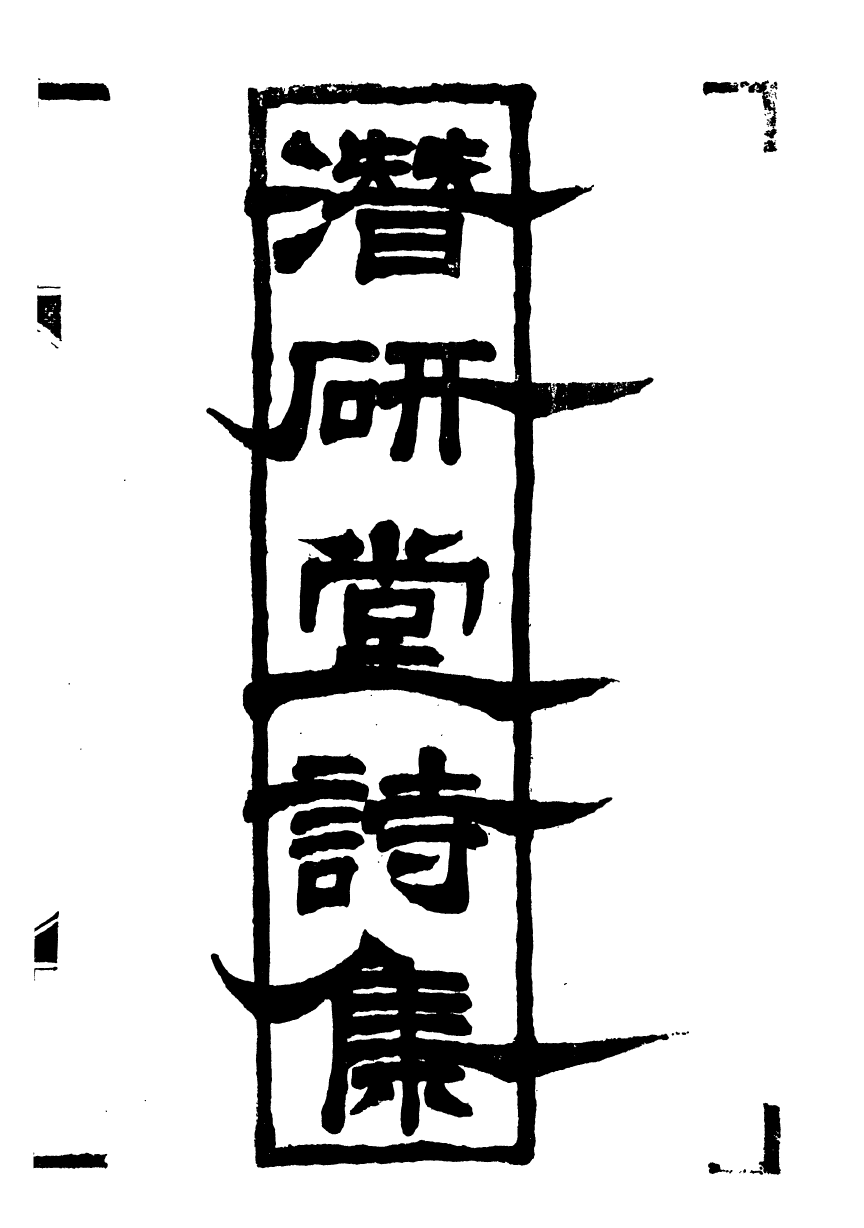 潛研堂詩集